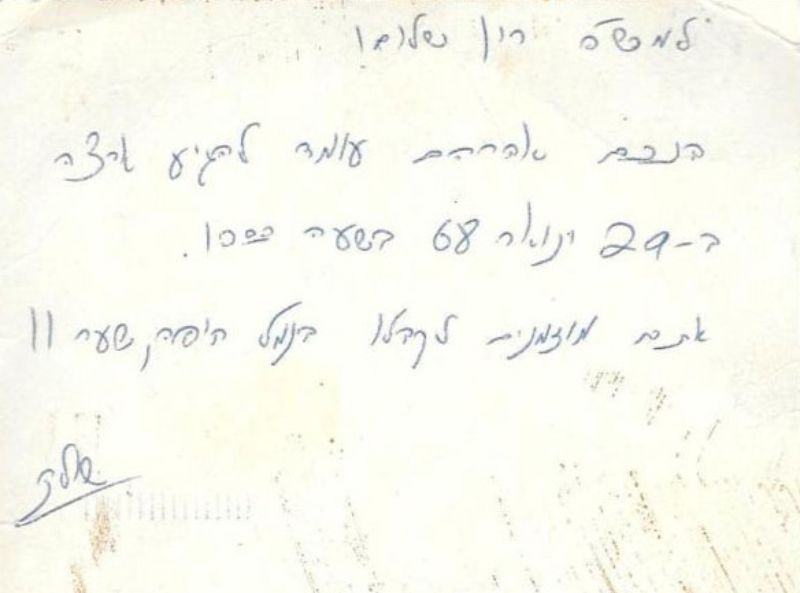 למש' רון שלום!
בנכם אברהם עומד להגיע ארצה
ב-29 ינואר 68 בשעה 1000.
אתם מוזמנים לקבלו בנמל חיפה, שער 11